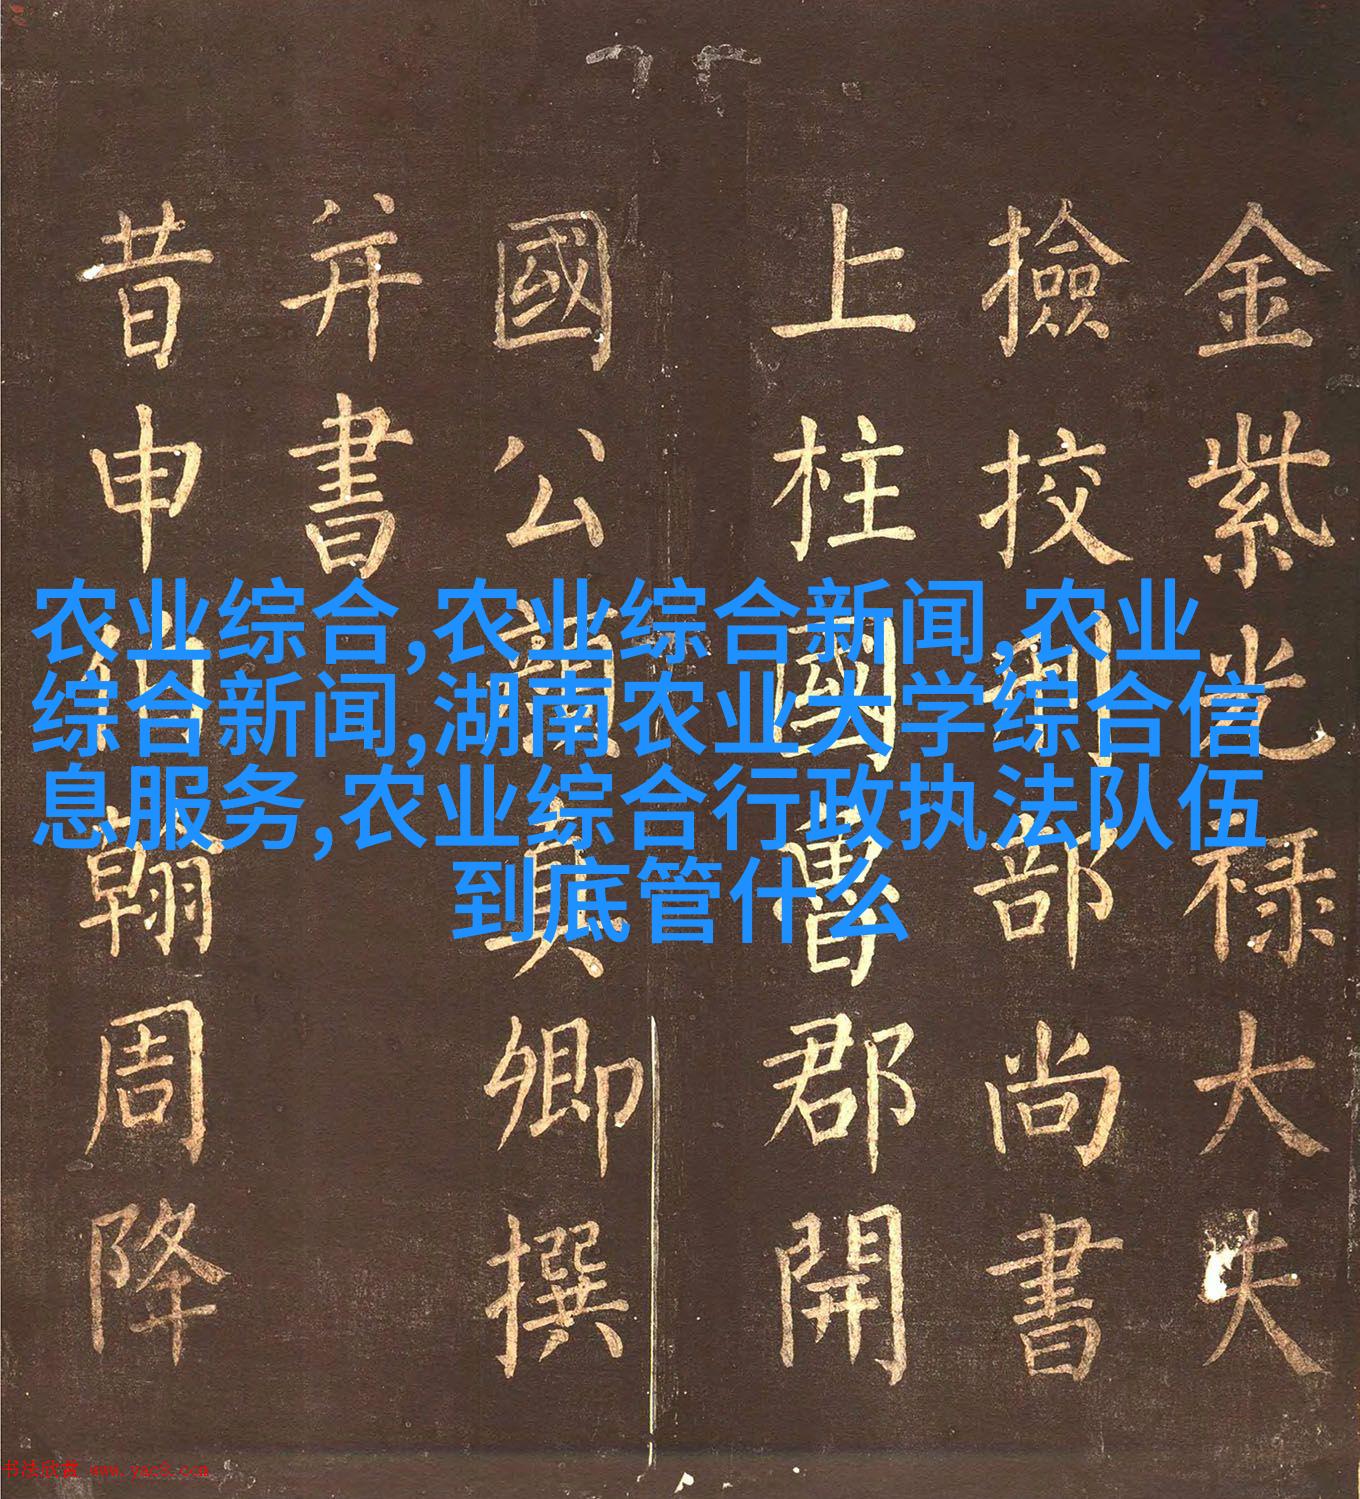 金紫光禄大夫
撿挍刑部尚書
上柱國魯郡開
國公顏真卿撰
并書
昔申伯翰周降
农业综合,农业综合新闻,农业
综合新闻,湖南农业大学综合信
息服务,农业综合行政执法队伍
到底管什么
书法欣赏 www.yac8.com